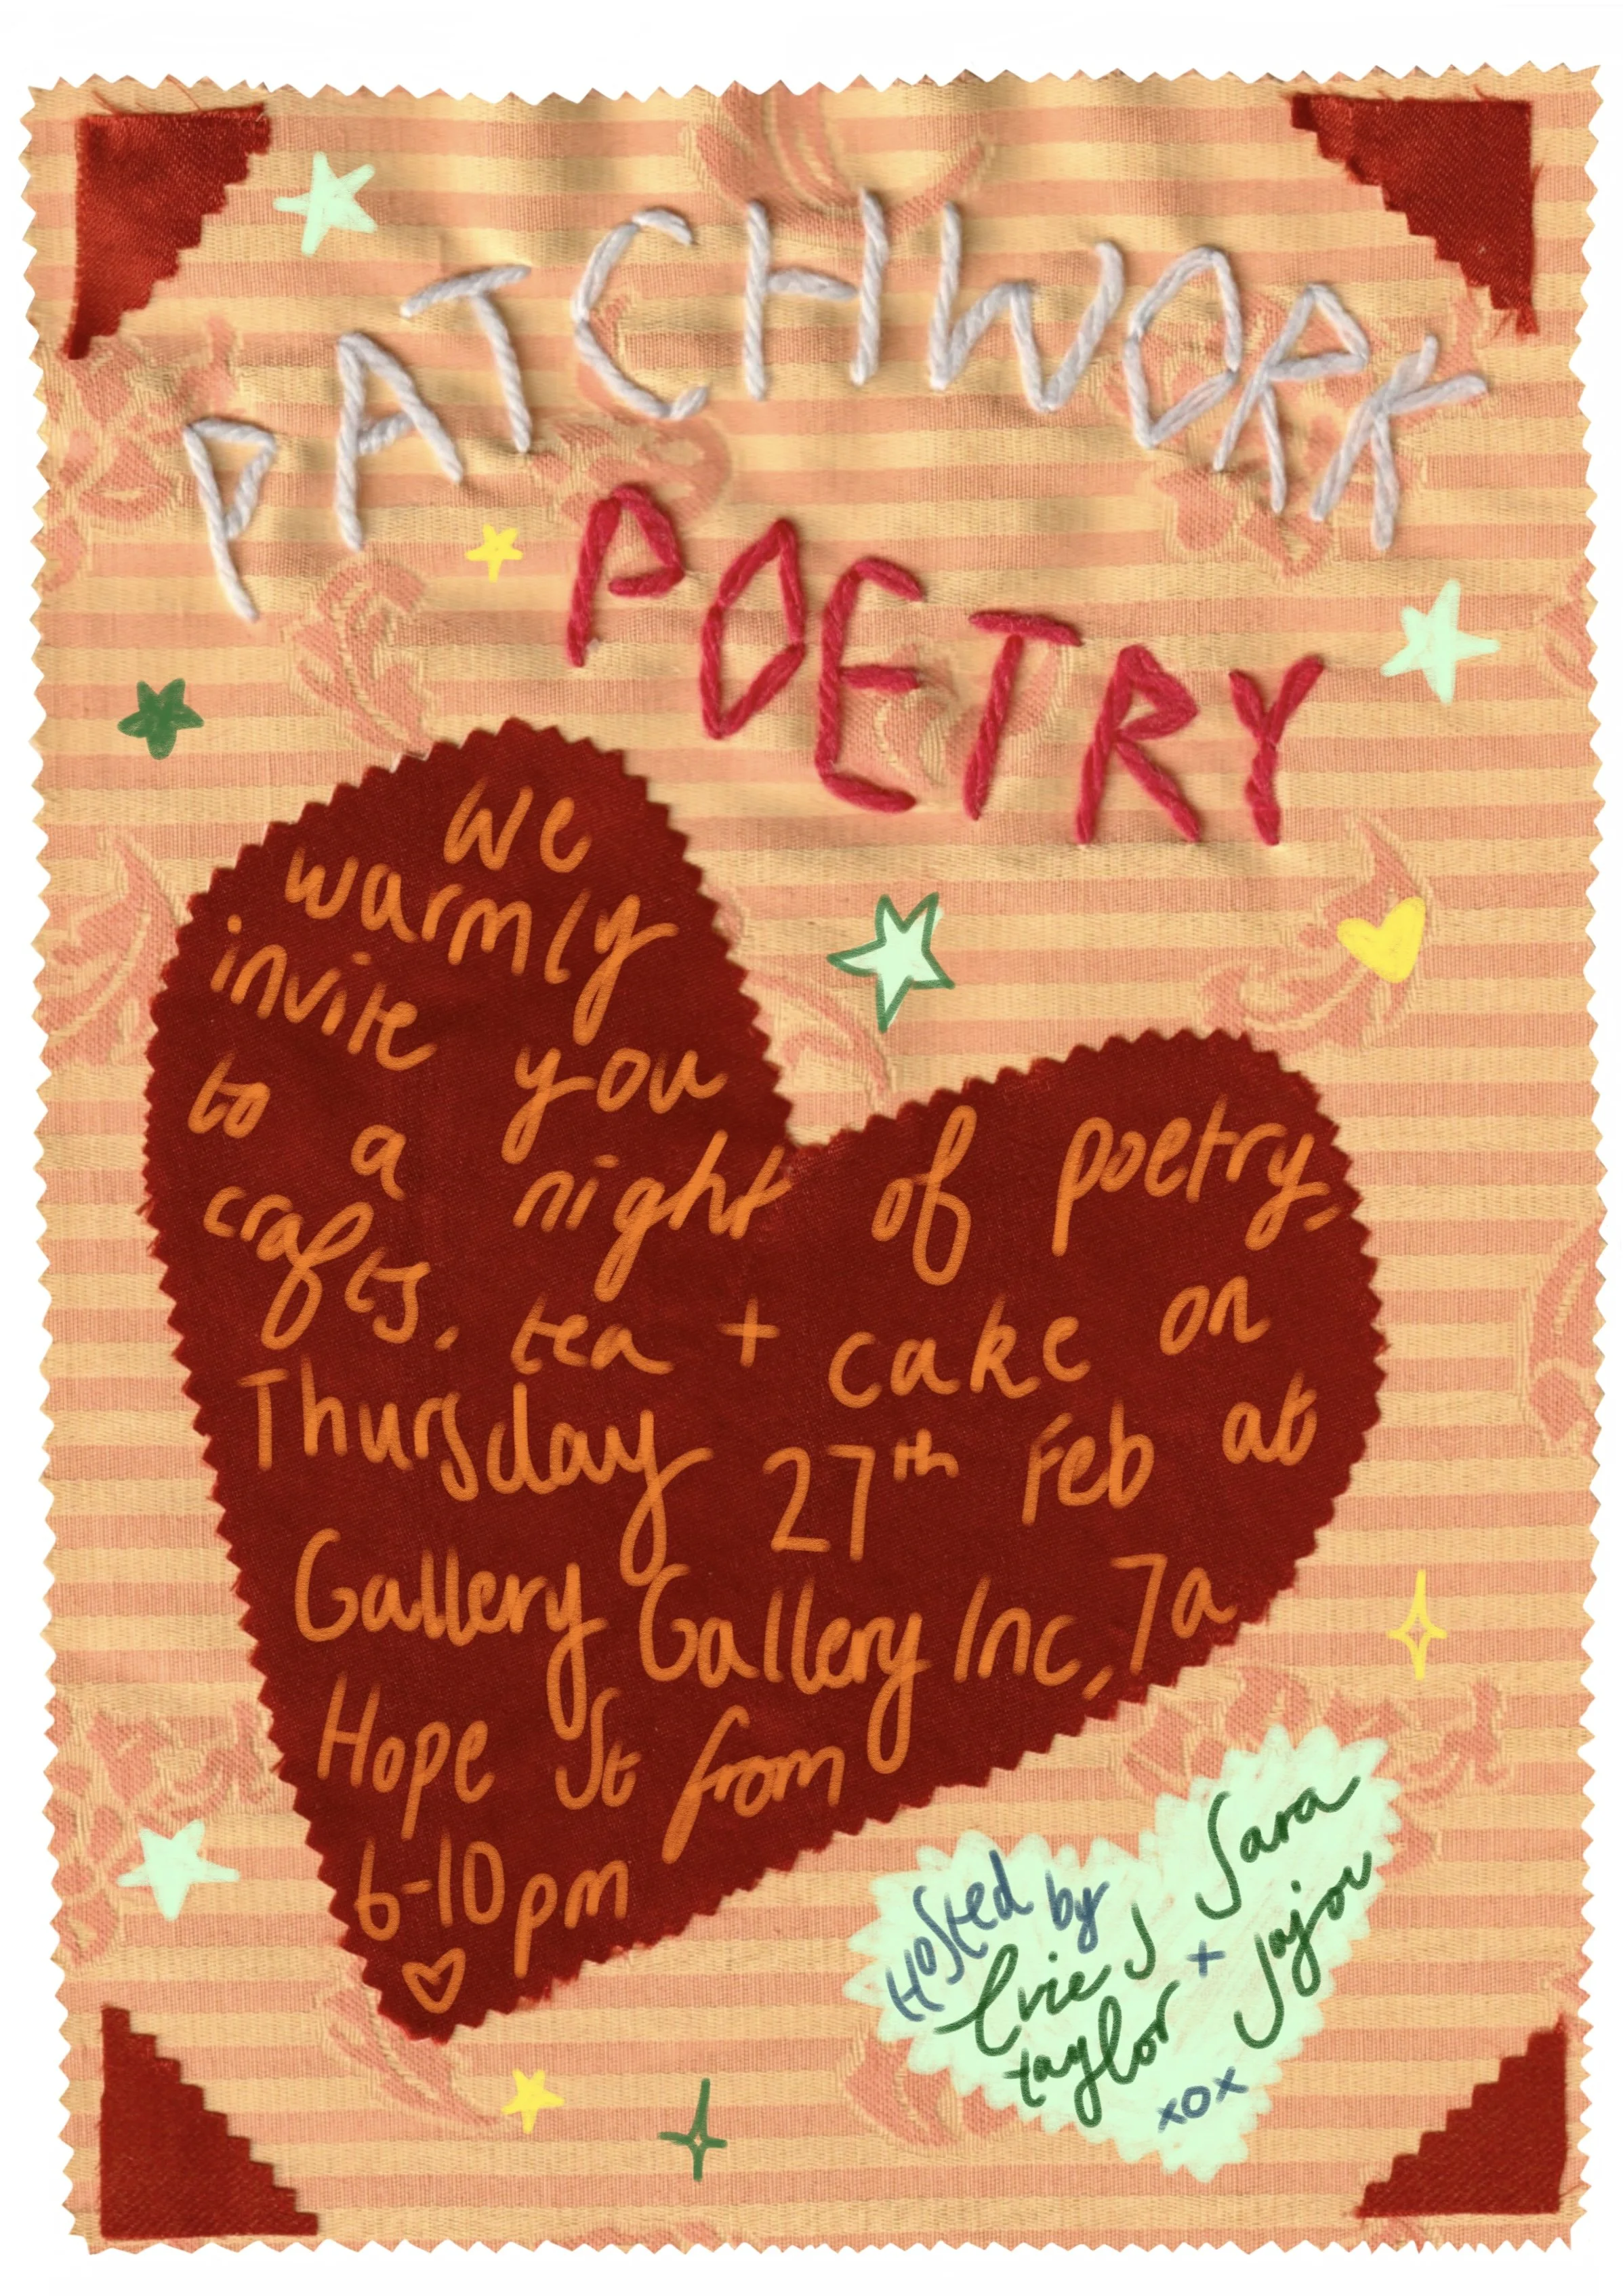 PATCHWORK
POETRY
We
warmly
invite you
to a night of poetry,
crafts, tea + cake on
Thursday 27th Feb at
Gallery Gallery Inc, 7a
Hope St from
6-10pm
Hosted by
Evie J
taylor
+
Sara
Jojou
xox